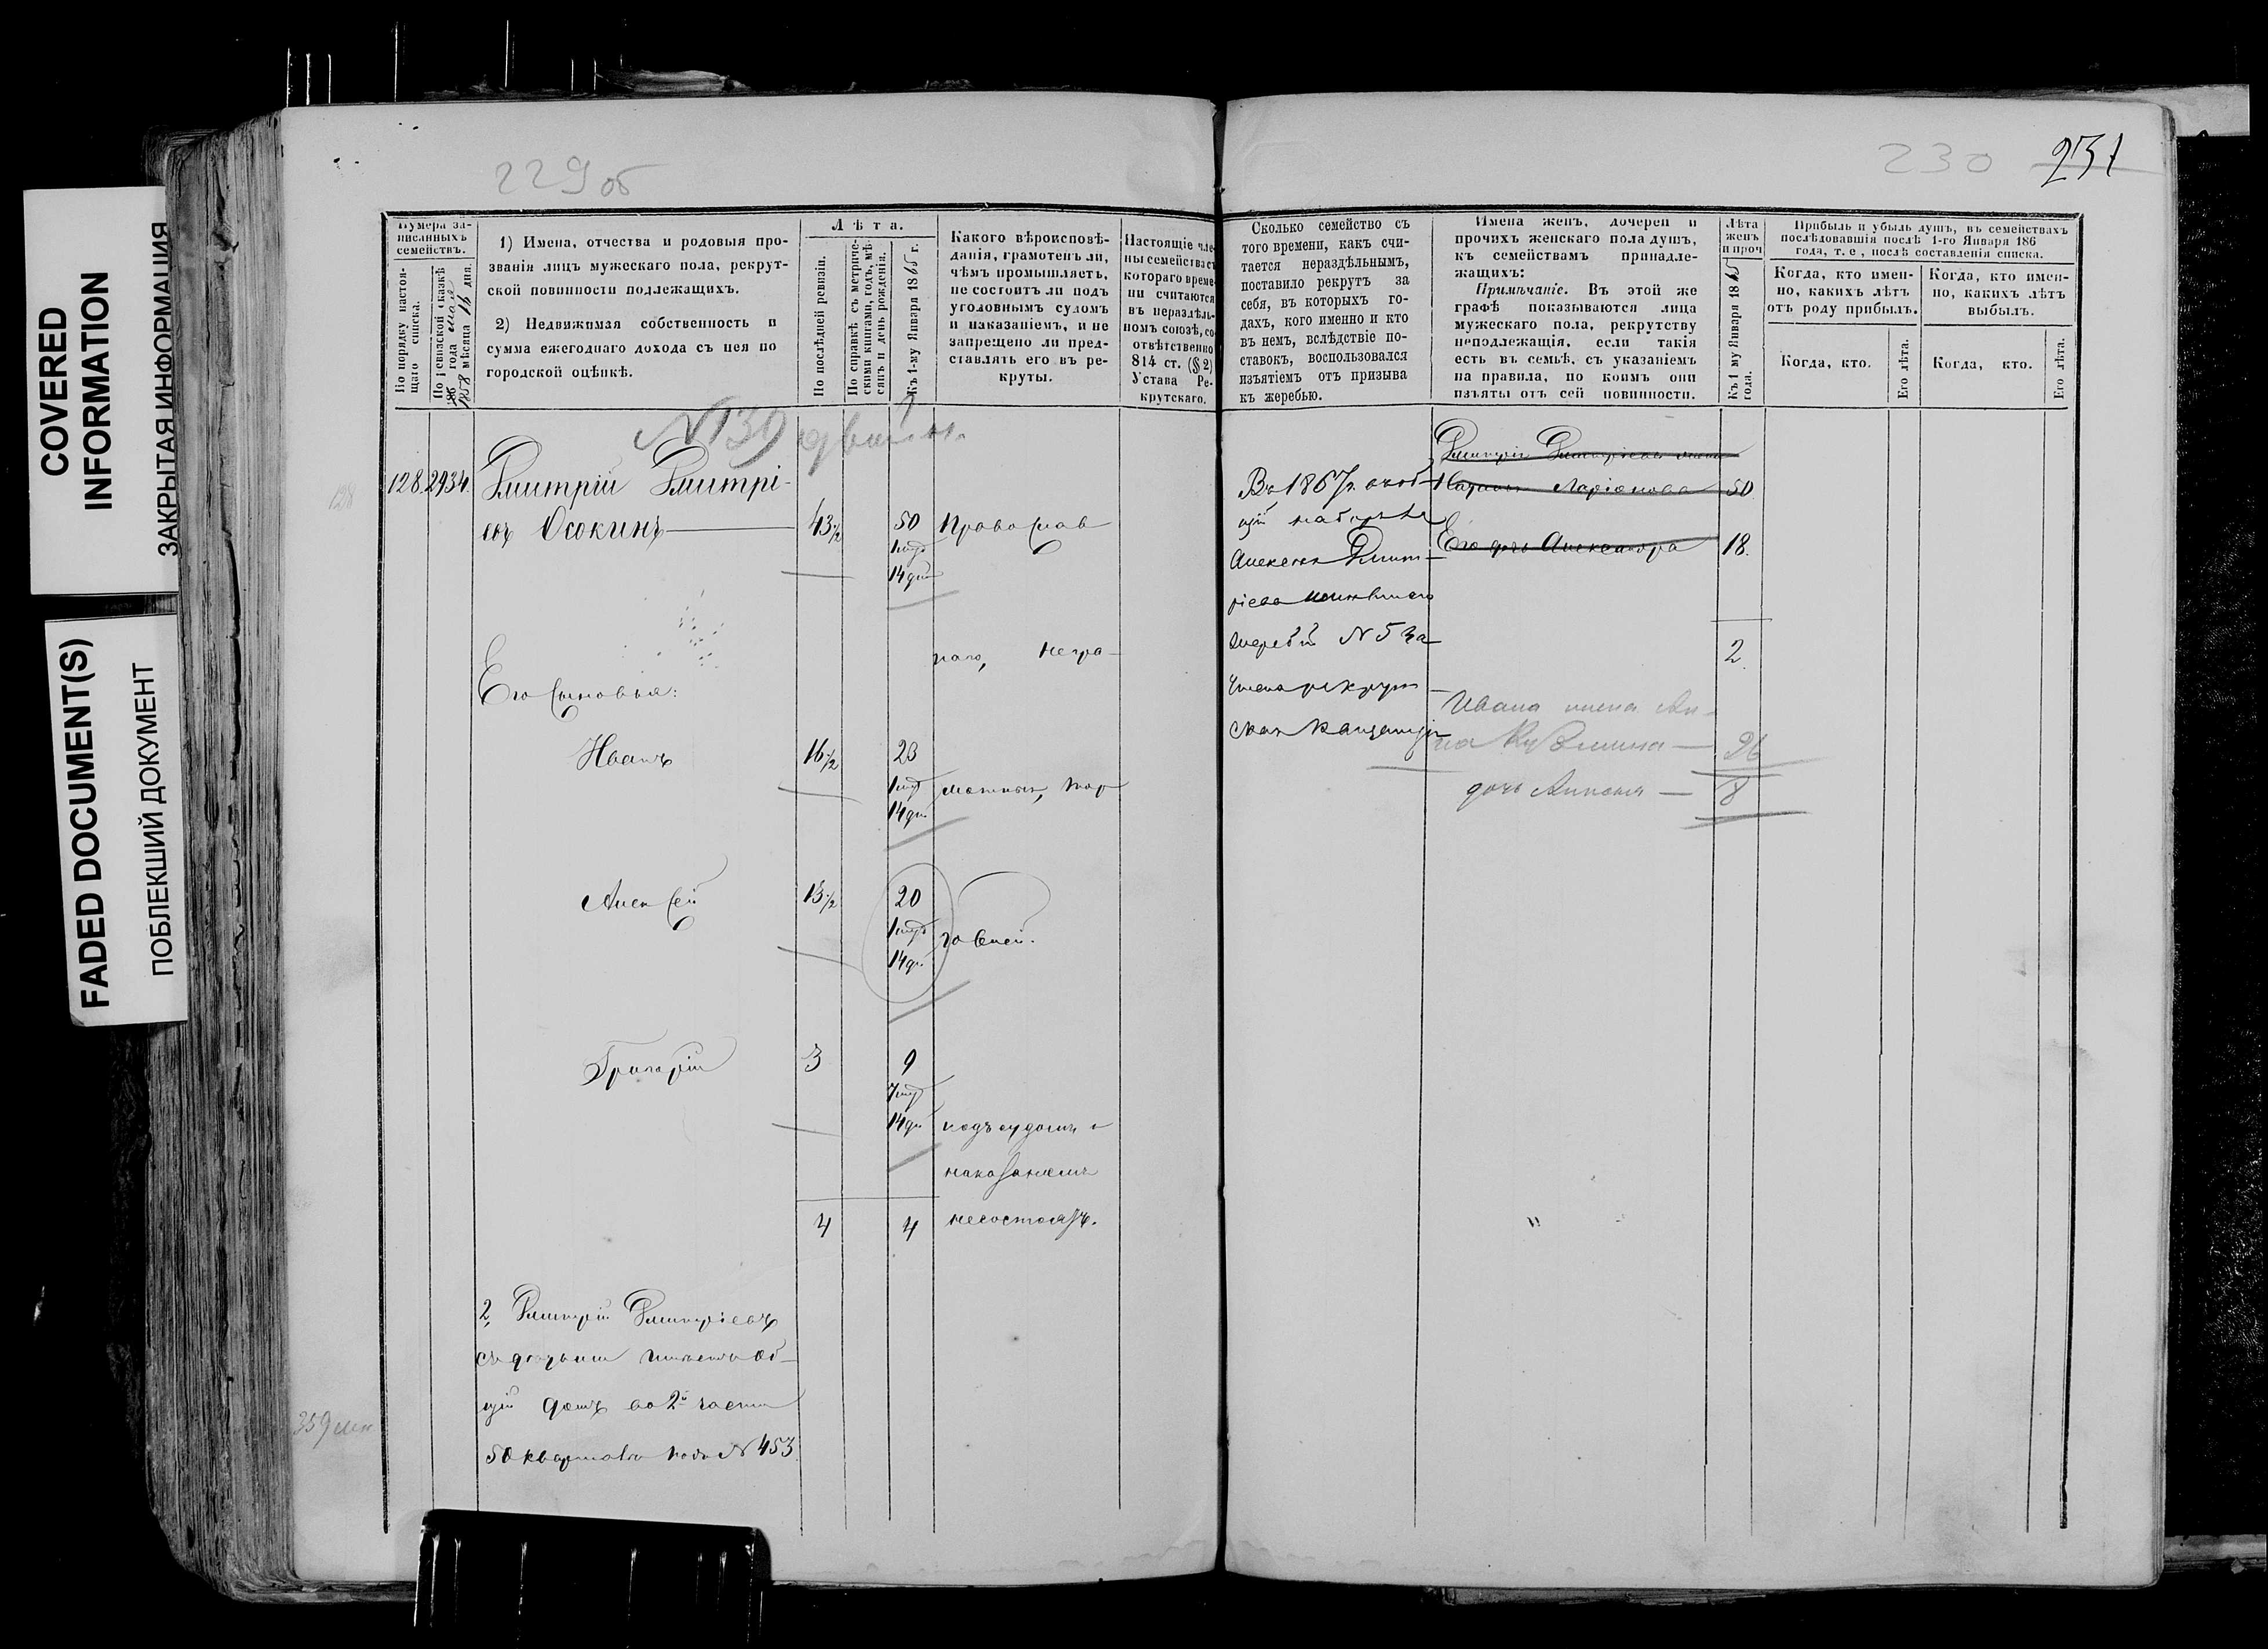 COVERED
INFORMATION
ЗАКРЫТАЯ ИНФОРМАЦИЯ
FADED DOCUMENT(S)
ПОБЛЕКШИЙ ДОКУМЕНТ
229 об
Нумера за-
писанныхъ
семействъ.
По порядку настоя-
щаго списка.
По ревизской сказкѣ
186 года мая
1858 мѣсяца 16 дня.
1) Имена, отчества и родовыя про-
званія лицъ мужескаго пола, рекрут-
ской повинности подлежащихъ.
2) Недвижимая собственность и
сумма ежегоднаго дохода съ нея по
городской оцѣнкѣ.
Лѣта.
По послѣдней ревизіи.
По справкѣ съ метриче-
скими книгами, годъ, мѣ-
сяцъ и день рожденія.
Къ 1-му Января 1865 г.
Какого вѣроисповѣ-
данія, грамотенъ ли,
чѣмъ промышляетъ,
не состоитъ ли подъ
уголовнымъ судомъ
и наказаніемъ, и не
запрещено ли пред-
ставлять его въ ре-
круты.
Настоящіе чле-
ны семейства съ
котораго време-
ни считаются
въ нераздѣль-
номъ союзѣ, со-
отвѣтственно
814 ст. (§ 2)
Устава Ре-
крутскаго.
№ 139
128
128 2934.
Дмитрій Дмитрі-
евъ Осокинъ
43 1/2
50
14 дн
Православ
Его сыновья:
наго, негра-
Иванъ
16 1/2
23
14 дн
мотный, тор
Алексѣй
13 1/2
20
14 дн
говлей.
Григорій
3
9
14 дн
подъ судомъ и
наказаніемъ
4
4
несостоятъ.
2, Дмитрій Дмитріевъ
съ дѣтьми имѣетъ об-
щій домъ во 2й части
50 квартала подъ № 453
230
231
Сколько семейство съ
того времени, какъ счи-
тается нераздѣльнымъ,
поставило рекрутъ за
себя, въ которыхъ го-
дахъ, кого именно и кто
въ немъ, вслѣдствіе по-
ставокъ, воспользовался
изъятіемъ отъ призыва
къ жеребью.
Имена женъ, дочерей и
прочихъ женскаго пола душъ,
къ семействамъ принадле-
жащихъ:
Примѣчаніе. Въ этой же
графѣ показываются лица
мужескаго пола, рекрутству
неподлежащія, если такія
есть въ семьѣ, съ указаніемъ
на правила, по коимъ они
изъяты отъ сей повинности.
Лѣта
женъ
и проч
Къ 1 му Января 1865
года.
Прибыль и убыль душъ, въ семействахъ
послѣдовавшія послѣ 1-го Января 186
года, т. е., послѣ составленія списка.
Когда, кто имен-
но, какихъ лѣтъ
отъ роду прибылъ.
Когда, кто имен-
но, какихъ лѣтъ
выбылъ.
Когда, кто.
Его лѣта.
Когда, кто.
Его лѣта.
Въ 1867 г. въ об-
щій наборъ за
Алексѣя Дмит-
ріева
жеребій № 5 за-
чтена рекрут-
ская квитанція
Дмитрія Дмитріева жена
Ларіонова 50
Его дочь Александра 18.
2
Ивана жена Ан-
на Кузьмина — 26
дочь — 8